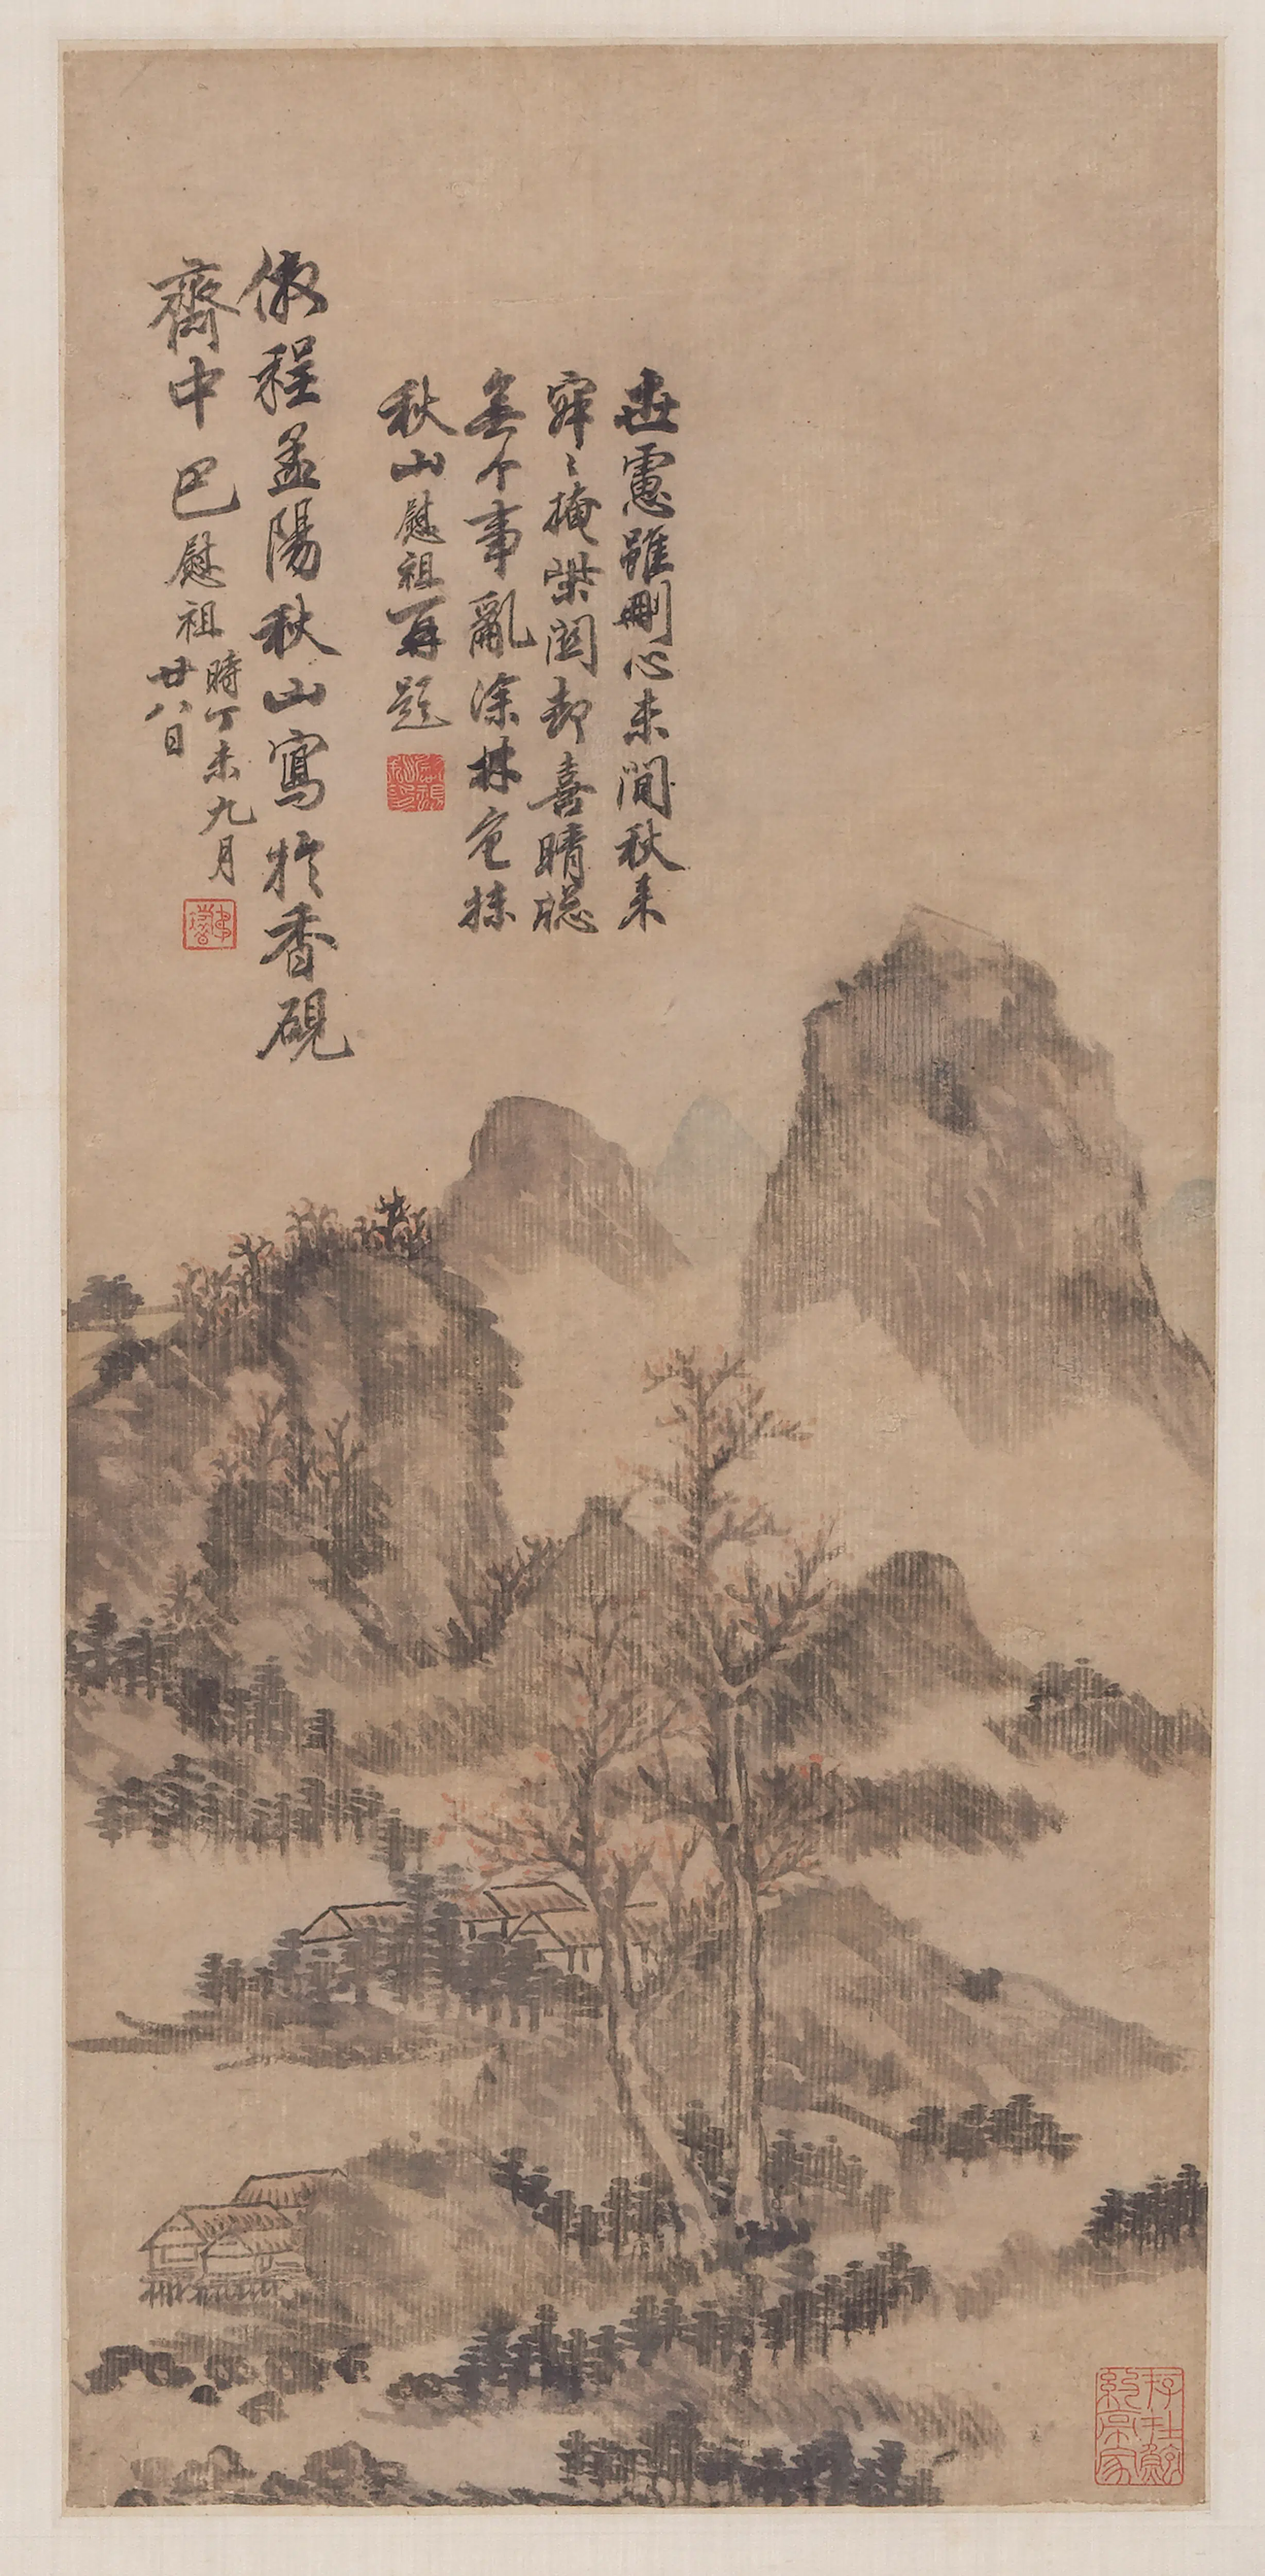 世慮雖刪心未閒秋來
寂〻掩柴関却喜晴牕
無个事亂涂林色抹
秋山慰祖再題
倣程孟陽秋山寫於香硯
齋中 巴慰祖 時丁未九月
廿八日